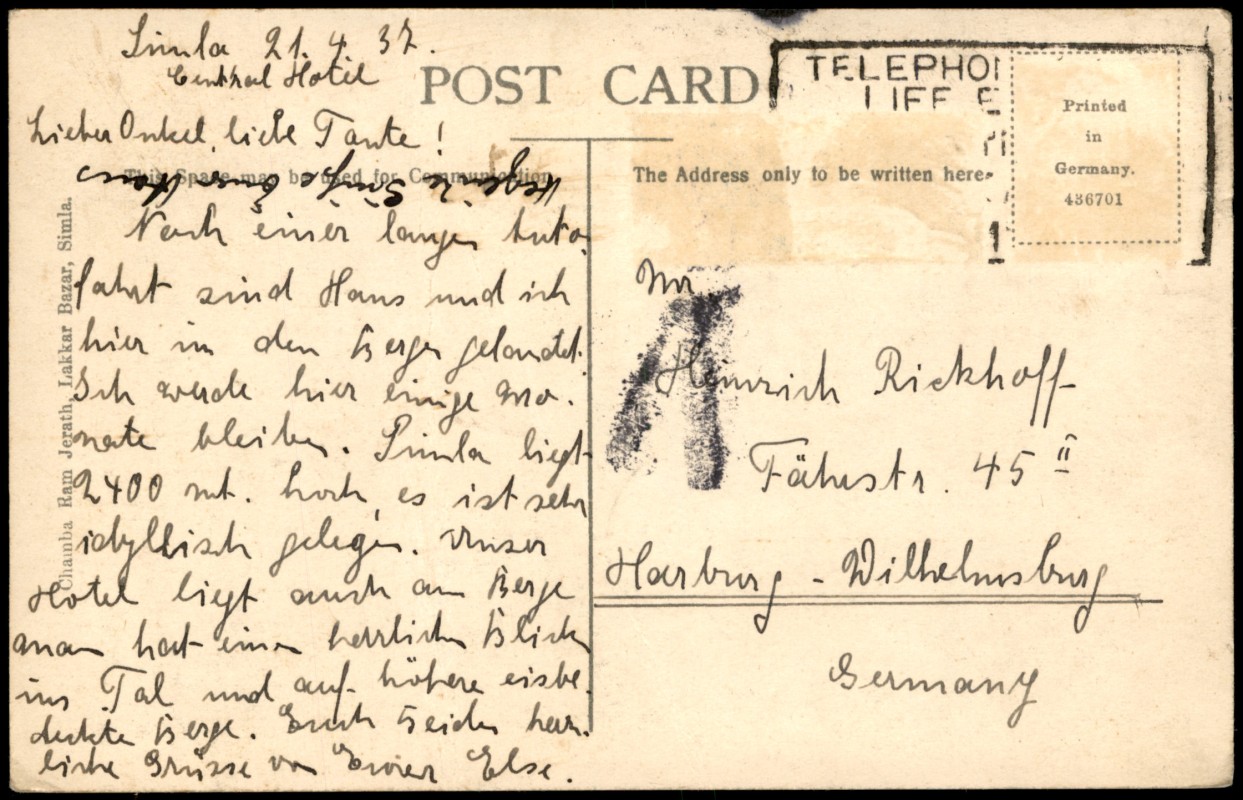 Simla 21. 4. 37.
Central Hotel
POST CARD
TELEPHO
LIFE E
Printed
in
Germany.
436701
Lieber Onkel, liebe Tante!
This Space may be used for Communication
The Address only to be written here.
Herzliche Grüße Euer Hans
Nach einer langen Auto-
fahrt sind Hans und ich
hier in den Bergen gelandet.
Ich werde hier einige Mo-
nate bleiben. Simla liegt
2400 mt. hoch, es ist sehr
idyllisch gelegen. Unser
Hotel liegt auch am Berge
man hat einen herrlichen Blick
ins Tal und auf höhere eisbe-
deckte Berge. Euch beiden herz-
liche Grüsse von Eurer Else.
Chamba Ram Jerath, Lakkar Bazar, Simla.
Mr
Heinrich Rickhoff
Fährstr. 45 II
Harburg - Wilhelmsburg
Germany